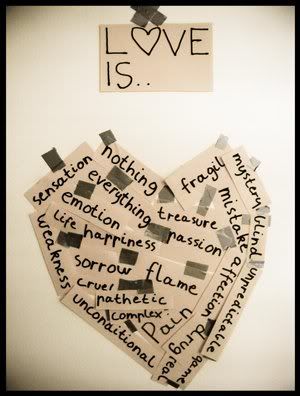 L♡VE
IS..
sensation
nothing
everything
emotion
treasure
fragil
mystery
blind
life
happiness
passion
mistake
affection
unpredictable
weakness
sorrow
flame
cruel
pathetic
complex
Pain
unconditional
drug
real
game